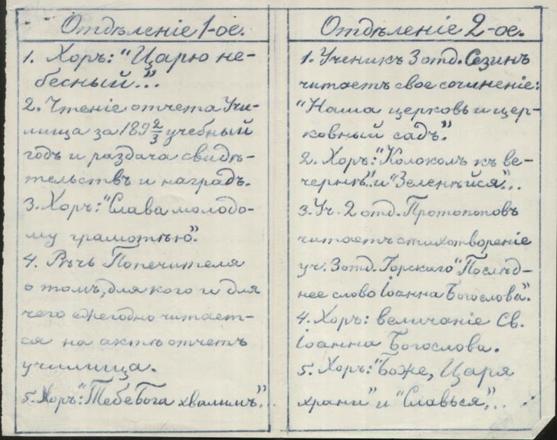 Отдѣленіе 1-ое.
1. Хоръ: "Царю не-
бесный..."
2. Чтеніе отчета Учи-
лища за 189 2/3 учебный
годъ и раздача свидѣ-
тельствъ и наградъ.
3. Хоръ: "Слава молодо-
му грамотѣю".
4. Рѣчь Попечителя
о томъ, для кого и для
чего ежегодно читает-
ся на актѣ отчетъ
училища.
5. Хоръ: "Тебе Бога хвалимъ"...
Отдѣленіе 2-ое.
1. Ученикъ 3 отд. Сезинъ
читаетъ свое сочиненіе:
"Наша церковь и цер-
ковный садъ".
2. Хоръ: "Колоколъ къ ве-
чернѣ" и "Зеленѣйся"...
3. Уч. 2 отд. Протопоповъ
читаетъ стихотвореніе
уч. 3 отд. Горскаго "Послѣд-
нее слово Іоанна Богослова".
4. Хоръ: величаніе Св.
Іоанна Богослова.
5. Хоръ: "Боже, Царя
храни" и "Славься"...